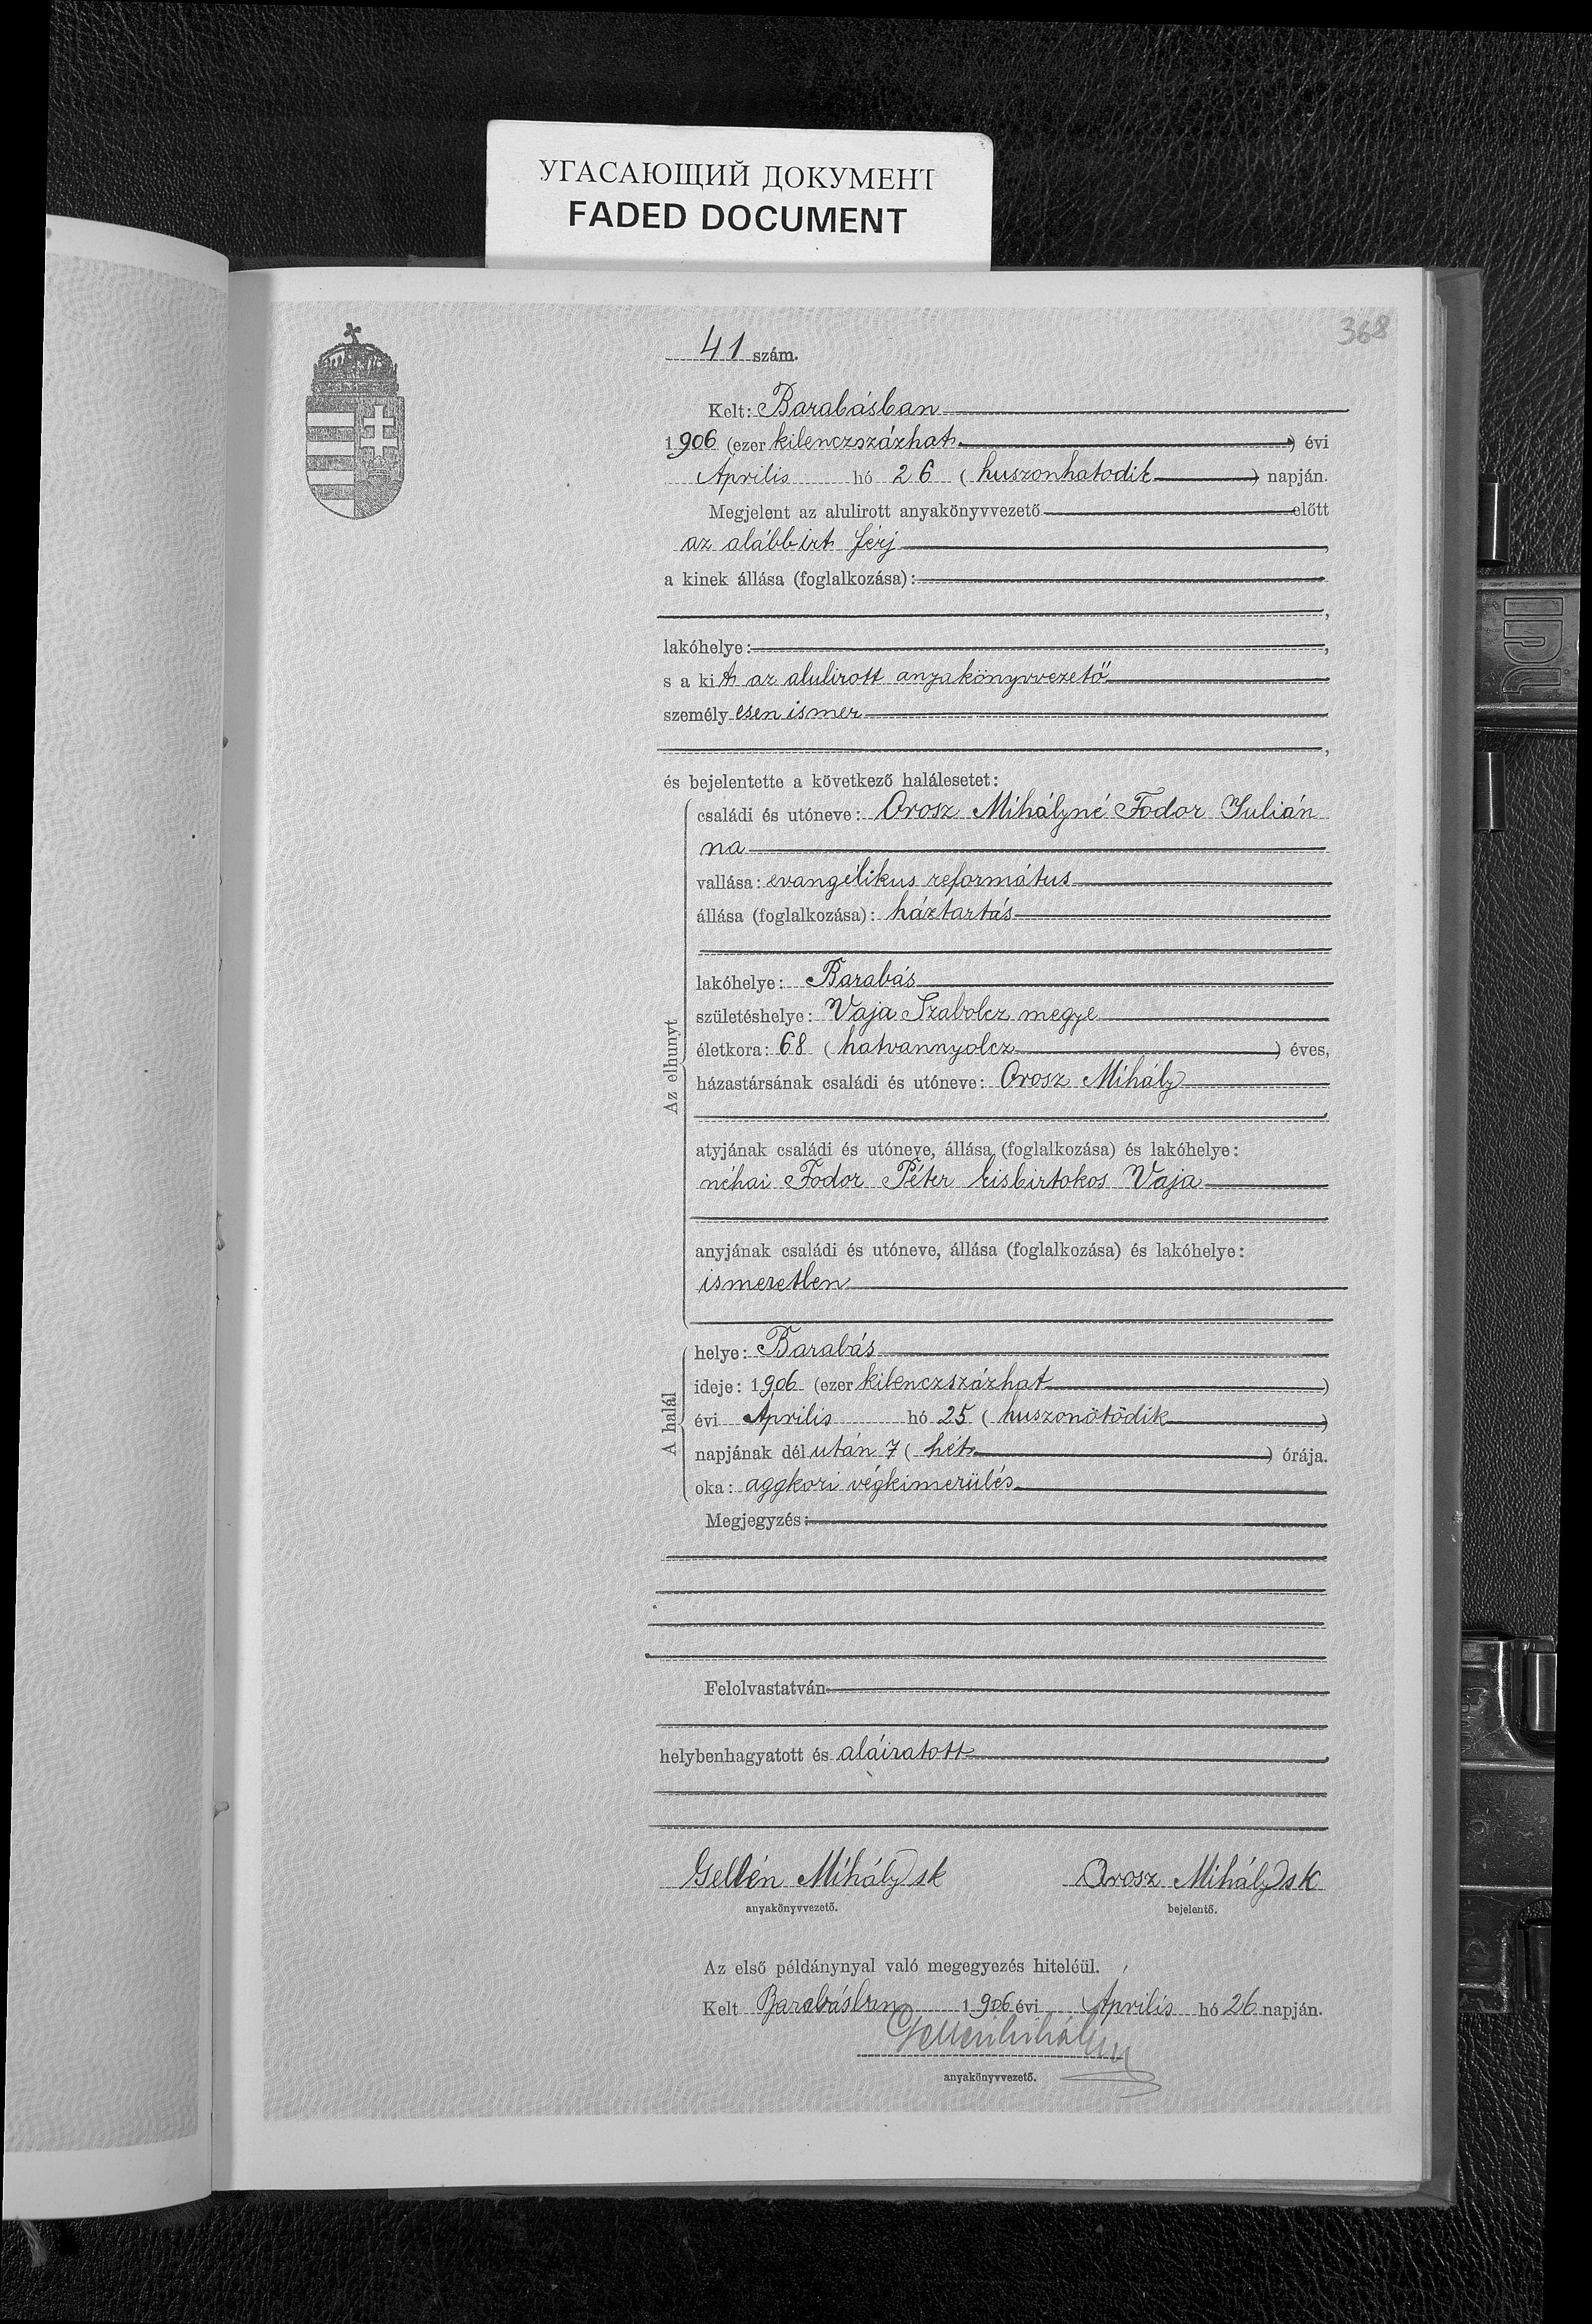 УГАСАЮЩИЙ ДОКУМЕНТ
FADED DOCUMENT
368
41 szám.
Kelt: Barabásban
1906 (ezer kilenczszázhat) évi
Április hó 26 (huszonhatodik) napján.
Megjelent az alulirott anyakönyvvezető előtt
az alább irt férj,
a kinek állása (foglalkozása):
,
lakóhelye: ,
s a kit az alulirott anyakönyvvezető
személyesen ismer
,
és bejelentette a következő halálesetet:
Az elhunyt
családi és utóneve: Orosz Mihályné Fodor Julián
na
vallása: evangélikus református
állása (foglalkozása): háztartás
lakóhelye: Barabás
születéshelye: Vaja Szabolcz megye
életkora: 68 (hatvannyolcz) éves,
házastársának családi és utóneve: Orosz Mihály
atyjának családi és utóneve, állása (foglalkozása) és lakóhelye:
néhai Fodor Péter kisbirtokos Vaja
anyjának családi és utóneve, állása (foglalkozása) és lakóhelye:
ismeretlen
A halál
helye: Barabás
ideje: 1906 (ezer kilenczszázhat)
évi Április hó 25 (huszonötödik)
napjának délután 7 (hét) órája.
oka: aggkori végkimerülés
Megjegyzés:
Felolvastatván
helybenhagyatott és aláiratott
Gellén Mihály sk Orosz Mihály sk
anyakönyvvezető. bejelentő.
Az első példánynyal való megegyezés hiteléül.
Kelt Barabásban 1906 évi Április hó 26 napján.
Gellén Mihály
anyakönyvvezető.